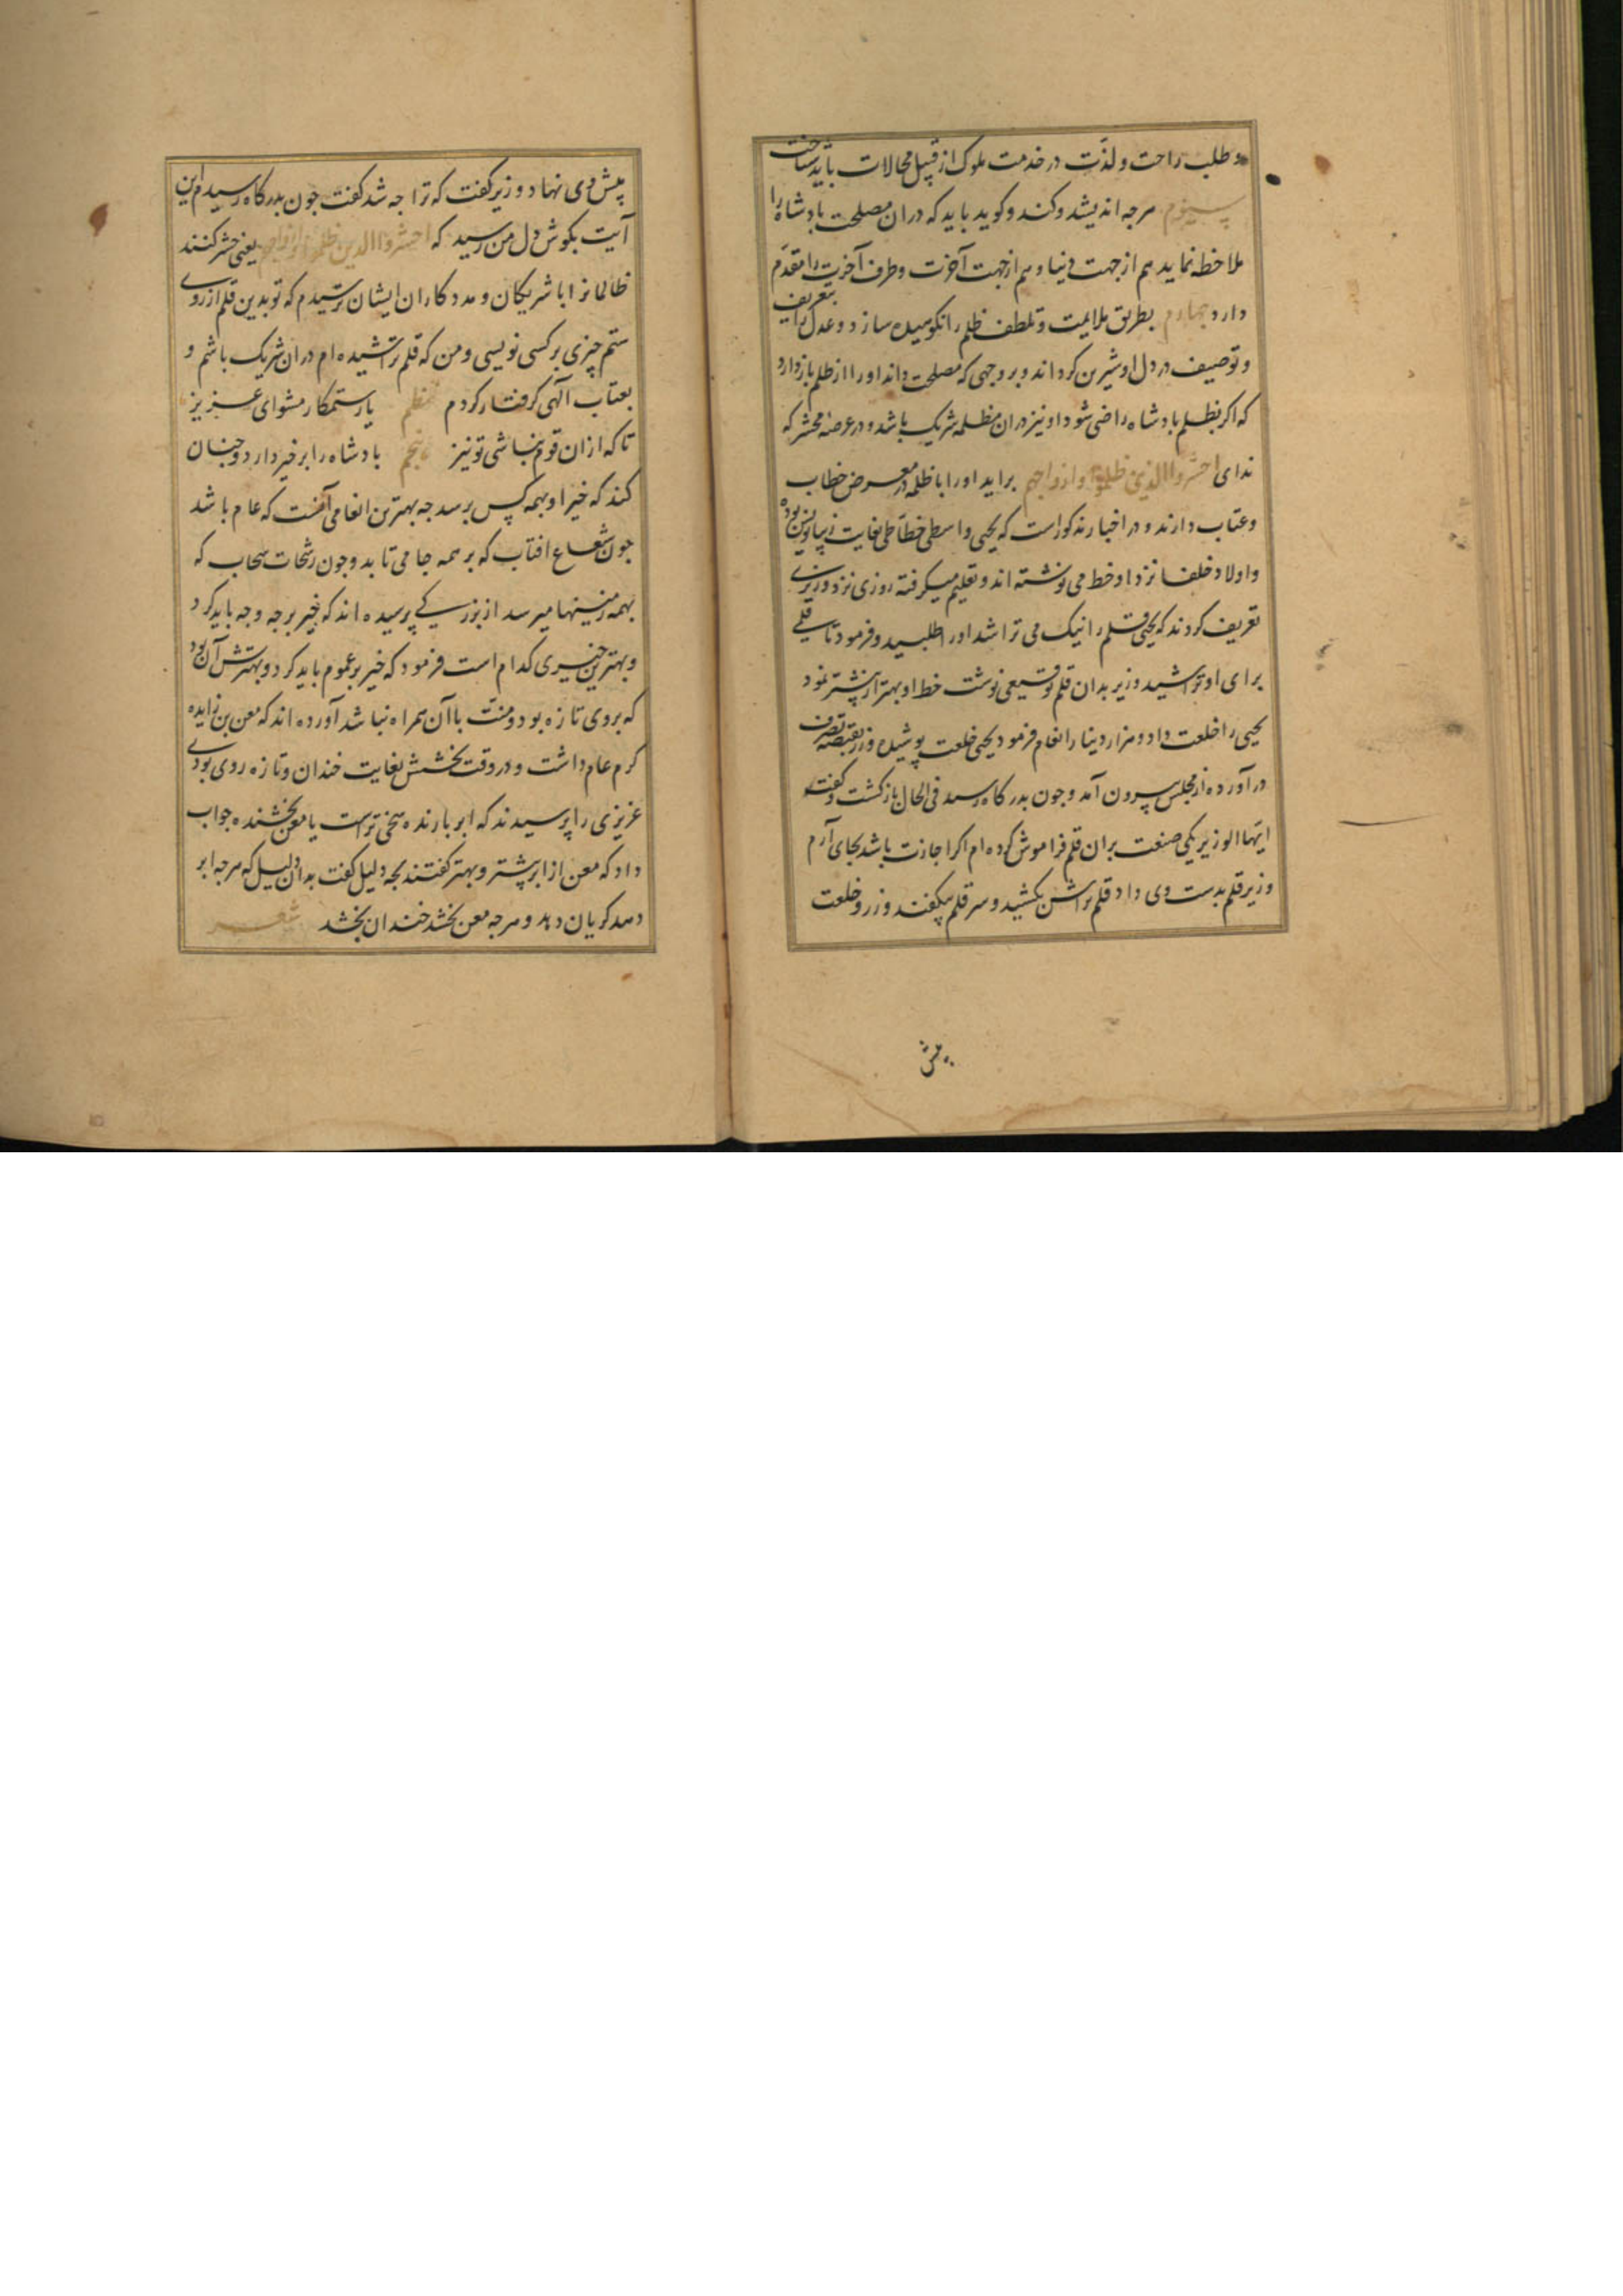 و طلب راحت و لذت در خدمت ملوک از قبیل محالات باید شناخت
سیوم مرجه اندیشد و کند و کوید باید که دران مصلحت بادشاه را
ملاحظه نماید هم از جهت دنیا و هم از جهت آخرت و طرف آخرت را مقدم
دارد جهارم بطریق ملایمت و تلطف ظلم را نکوهیده سازد و عدل را بتعریف
و توصیف در دل او شیرین کرداند و بر وجهی که مصلحت داند او را از ظلم بازدارد
که اکر بظلم بادشاه راضی شود او نیز دران مظلمه شریک باشد و در عرصه محشر که
ندای احشروا الذین ظلموا و ازواجهم براید او را با ظلمه در معرض خطاب
و عتاب دارند و در اخبار مذکور است که یحیی واسطی خطاطی بغایت زیبانویس بوده
و اولاد خلفا نزد او خط می نوشته اند و تعلیم میکرفته روزی نزد وزیری
تعریف کردند که یحیی قلم را نیک می تراشد او را طلبید و فرمود تا قلمی
برای او تراشید وزیر بدان قلم توقیعی نوشت خط او بهتر از بیشتر نمود
یحیی را خلعت داد و هزار دینار انعام فرمود یحیی خلعت پوشیده و زر بقبضه تصرف
در آورده از مجلس بیرون آمد و جون بدرکاه رسید فی الحال بازکشت و کفت
ایها الوزیر یکی صنعت بران قلم فراموش کرده ام اکر اجازت باشد بجای آرم
وزیر قلم بدست وی داد قلم تراش بکشید و سر قلم بیکفند و زر و خلعت
پیش
پیش وی نهاد وزیر کفت که ترا جه شد کفت جون بدرکاه رسیدم این
آیت بکوش دل من رسید که احشروا الذین ظلموا و ازواجهم یعنی حشر کنند
ظالمانرا با شریکان و مددکاران ایشان ترسیدم که تو بدین قلم از روی
ستم چیزی بر کسی نویسی و من که قلم تراشیده ام دران شریک باشم و
بعتاب آلهی کرفتار کردم نظم یار ستمکار مشو ای عزیز
تا که ازان قوم نباشی تو نیز پنجم بادشاه را بر خیر دارد و جنان
کند که خیر او بهمه کس برسد جه بهترین انعامی آنست که عام باشد
جون شعاع افتاب که بر همه جا می تابد و جون رشحات سحاب که
بهمه زمینها میرسد از بزرکی پرسیده اند که خیر بر جه وجه باید کرد
و بهترین خیری کدام است فرمود که خیر بر عموم باید کرد و بهترش آن بود
که بروی تازه بود و منت با آن همراه نباشد آورده اند که معن بن زایده
کرم عام داشت و در وقت بخشش بغایت خندان و تازه روی بودی
عزیزی را پرسیدند که ابر بارنده سخی ترست یا معن بخشنده جواب
داد که معن از ابر بیشتر و بهتر کفتند بجه دلیل کفت بدان دلیل که مرجه ابر
دهد کریان دهد و مرجه معن بخشد خندان بخشد شعر